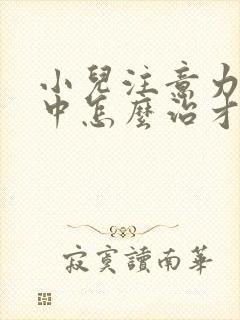 小兒注意力
中怎麼治才
寂寞讀南華